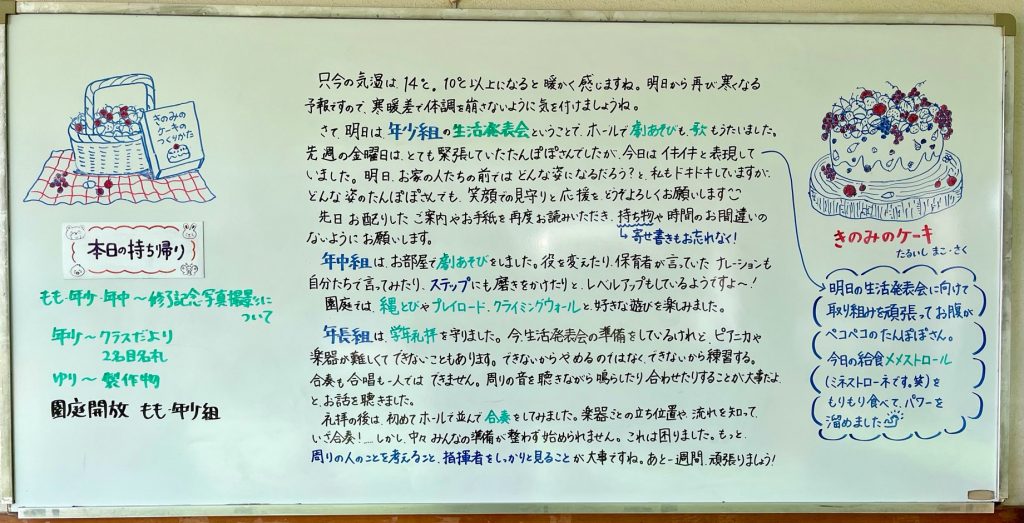 きのみの
ケーキの
つくりかた
本日の持ち帰り
もも・年少・年中～修了記念写真撮影に
ついて
年少～クラスだより
2名目名札
ゆり～製作物
園庭開放 もも・年少組
只今の気温は、14℃。10℃以上になると暖かく感じますね。明日から再び寒くなる
予報ですので、寒暖差で体調を崩さないように気を付けましょうね。
さて、明日は年少組の生活発表会ということで、ホールで劇あそびも、歌もうたいました。
先週の金曜日は、とても緊張していたたんぽぽさんでしたが、今日はイキイキと表現して
いました。明日、お客の人たちの前ではどんな姿になるだろう?と、私もドキドキしていますが、
どんな姿のたんぽぽさんでも、笑顔での見守りと応援をどうぞよろしくお願いします
先日お配りしたご案内やお手紙を再度お読みいただき、持ち物や時間のお間違いの
ないようにお願いします。
寄せ書きもお忘れなく!
年中組は、お部屋で劇あそびをしました。役を変えたり、保育者が言っていたナレーションも
自分たちで言ってみたり、ステップにも磨きをかけたりと、レベルアップもしているようですよ～!
園庭では、縄とびやプレイロード、クライミングウォールと、好きな遊びを楽しみました。
年長組は、学年礼拝を守りました。今、生活発表会の準備をしているけれど、ピアニカや
楽器が難しくてできないこともあります。できないからやめるのではなく、できないから練習する。
合奏も合唱も一人ではできません。周りの音を聴きながら鳴らしたり合わせたりすることが大事だよ
と、お話を聴きました。
礼拝の後は、初めてホールで並んで合奏をしてみました。楽器ごとの立ち位置や、流れを知って、
いざ合奏!……しかし、中々みんなの準備が整わず始められません。これは困りました。もっと、
周りの人のことを考えること、指揮者をしっかりと見ることが大事ですね。あと一週間、頑張りましょう!
きのみのケーキ
たるいし まこ・さく
明日の生活発表会に向けて
取り組みを頑張ってお腹が
ペコペコのたんぽぽさん。
今日の給食メメストロール
(ミネストローネです。笑)を
もりもり食べて、パワーを
溜めました